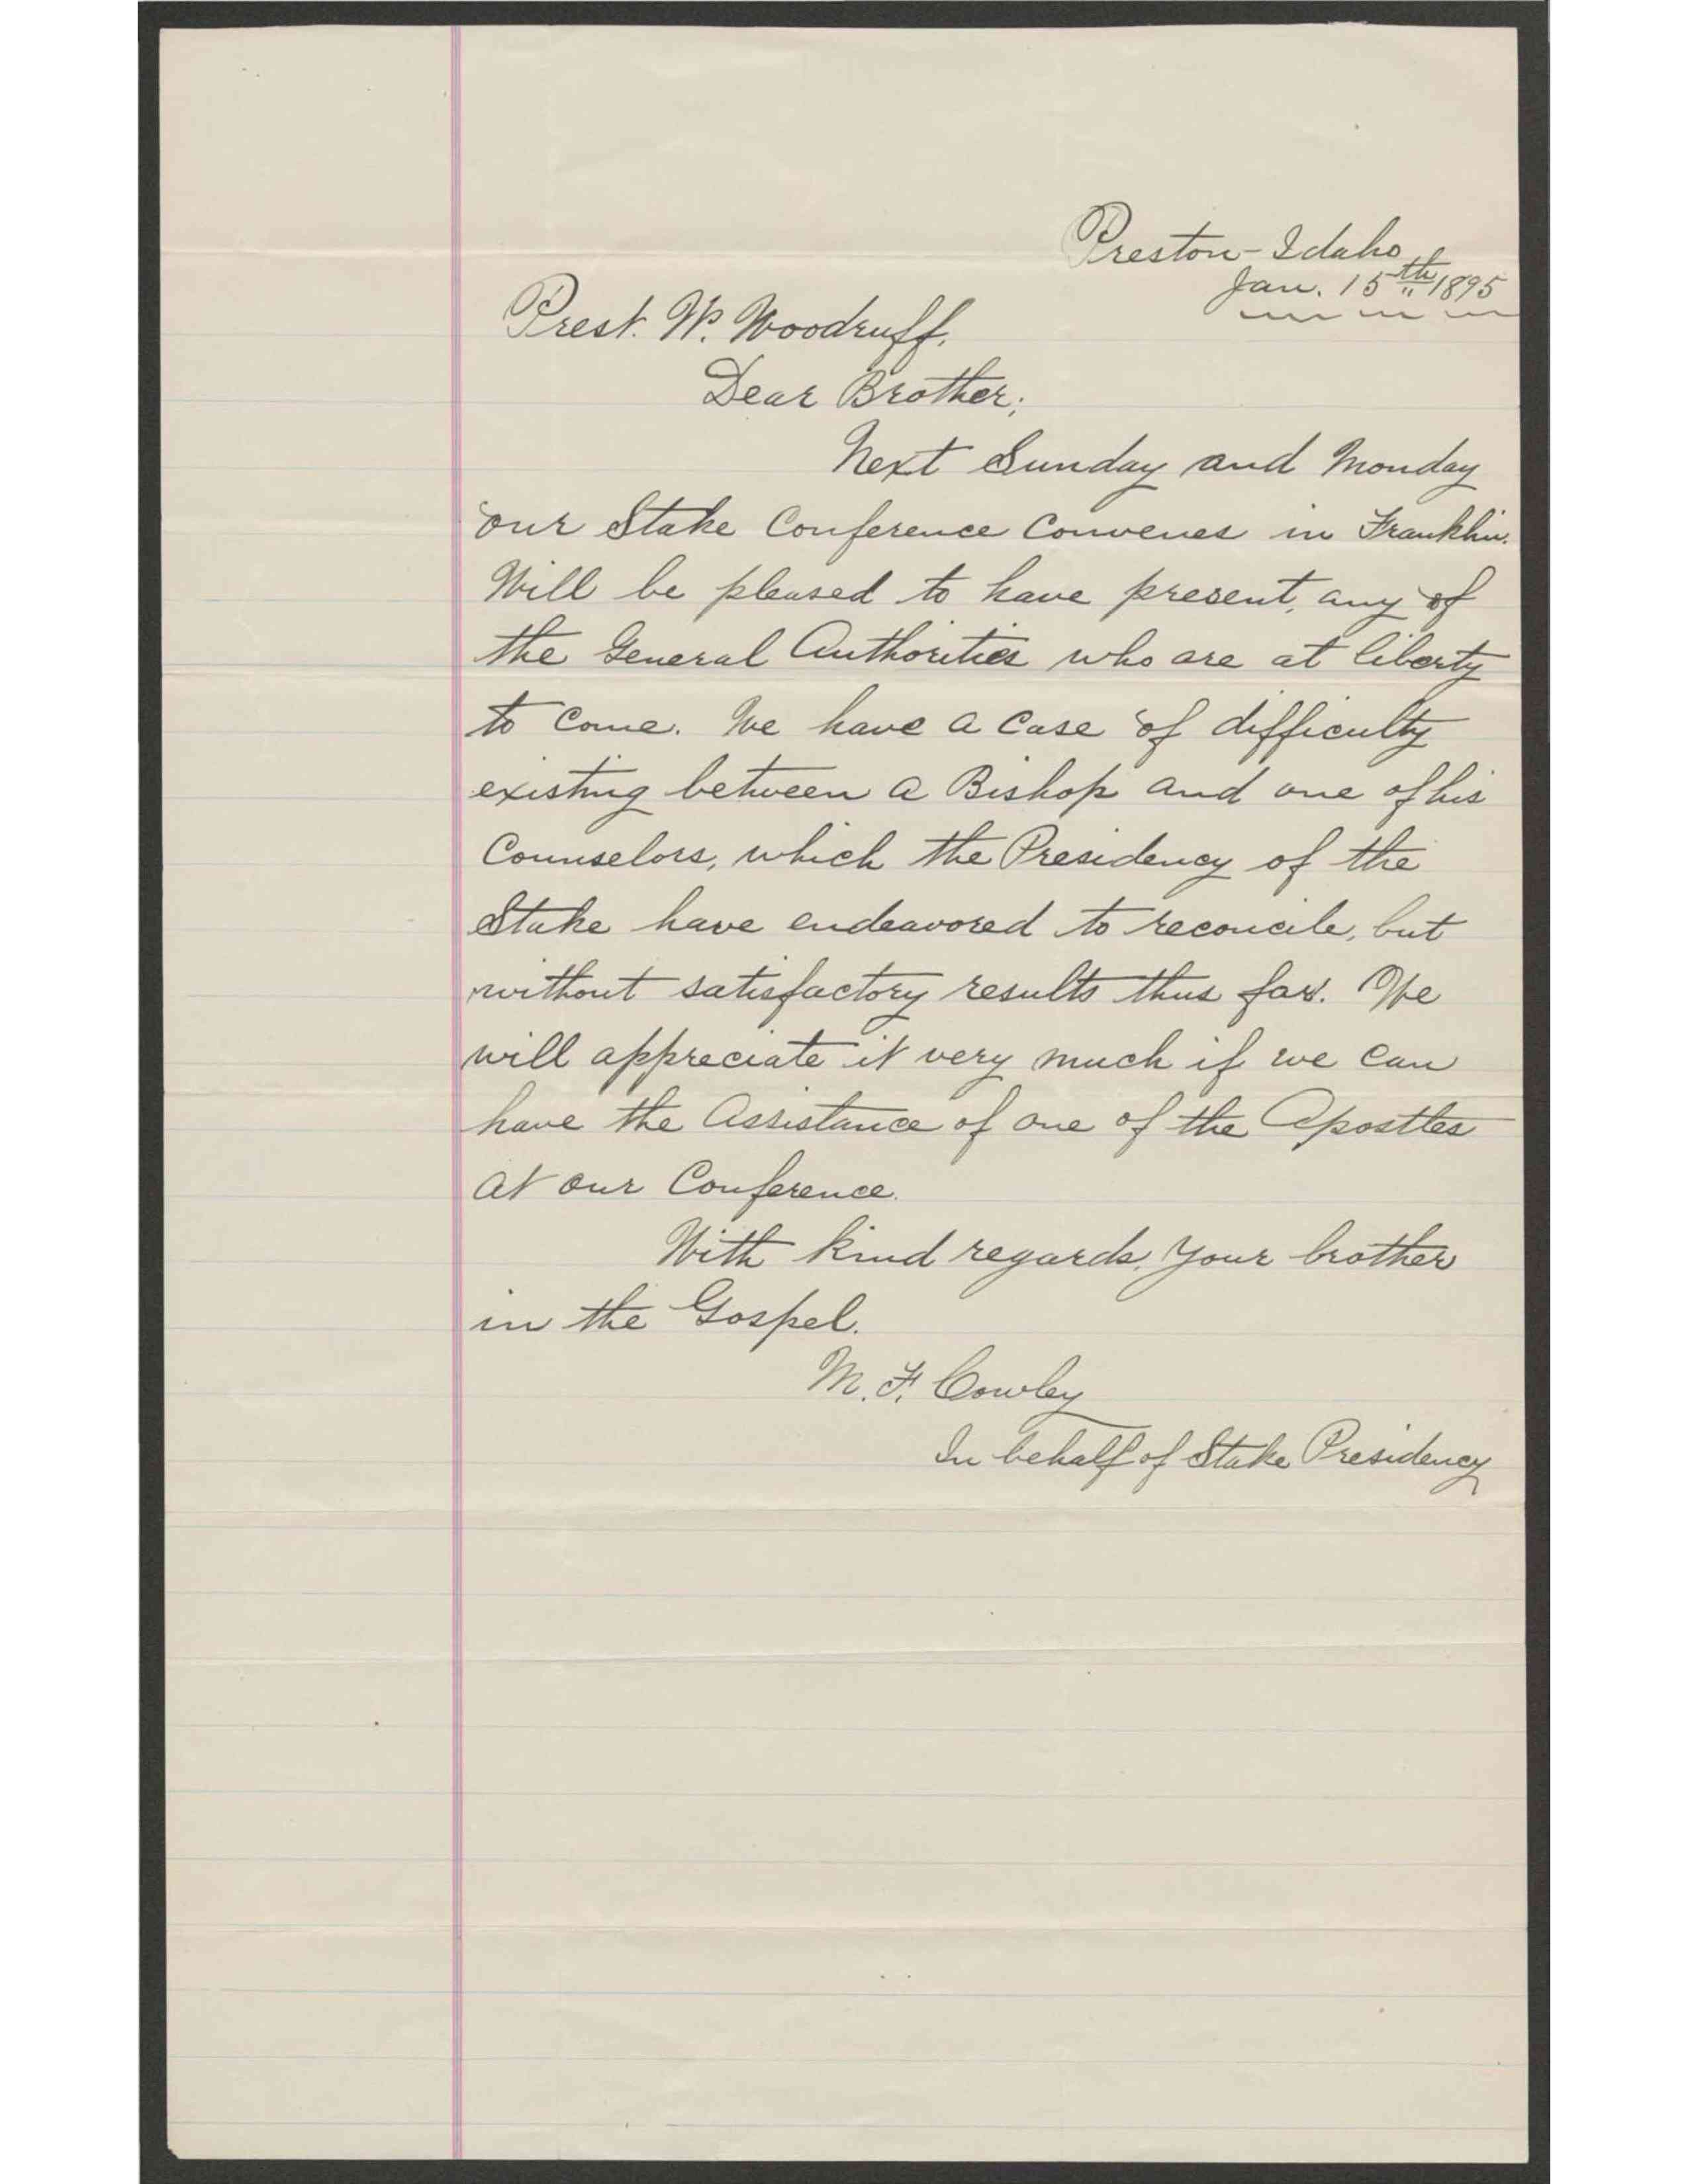 Preston-Idaho,
Jan. 15th 1895
Prest. W. Woodruff,
Dear Brother;
Next Sunday and Monday
our Stake Conference Convenes in Franklin.
Will be pleased to have present, any of
the General Authorities who are at liberty
to come. We have a case of difficulty
existing between a Bishop and one of his
Counselors, which the Presidency of the
Stake have endeavored to reconcile, but
without satisfactory results thus far. We
will appreciate it very much if we can
have the Assistance of one of the Apostles
at our Conference.
With kind regards, Your brother
in the Gospel.
M. F. Cowley
In behalf of Stake Presidency